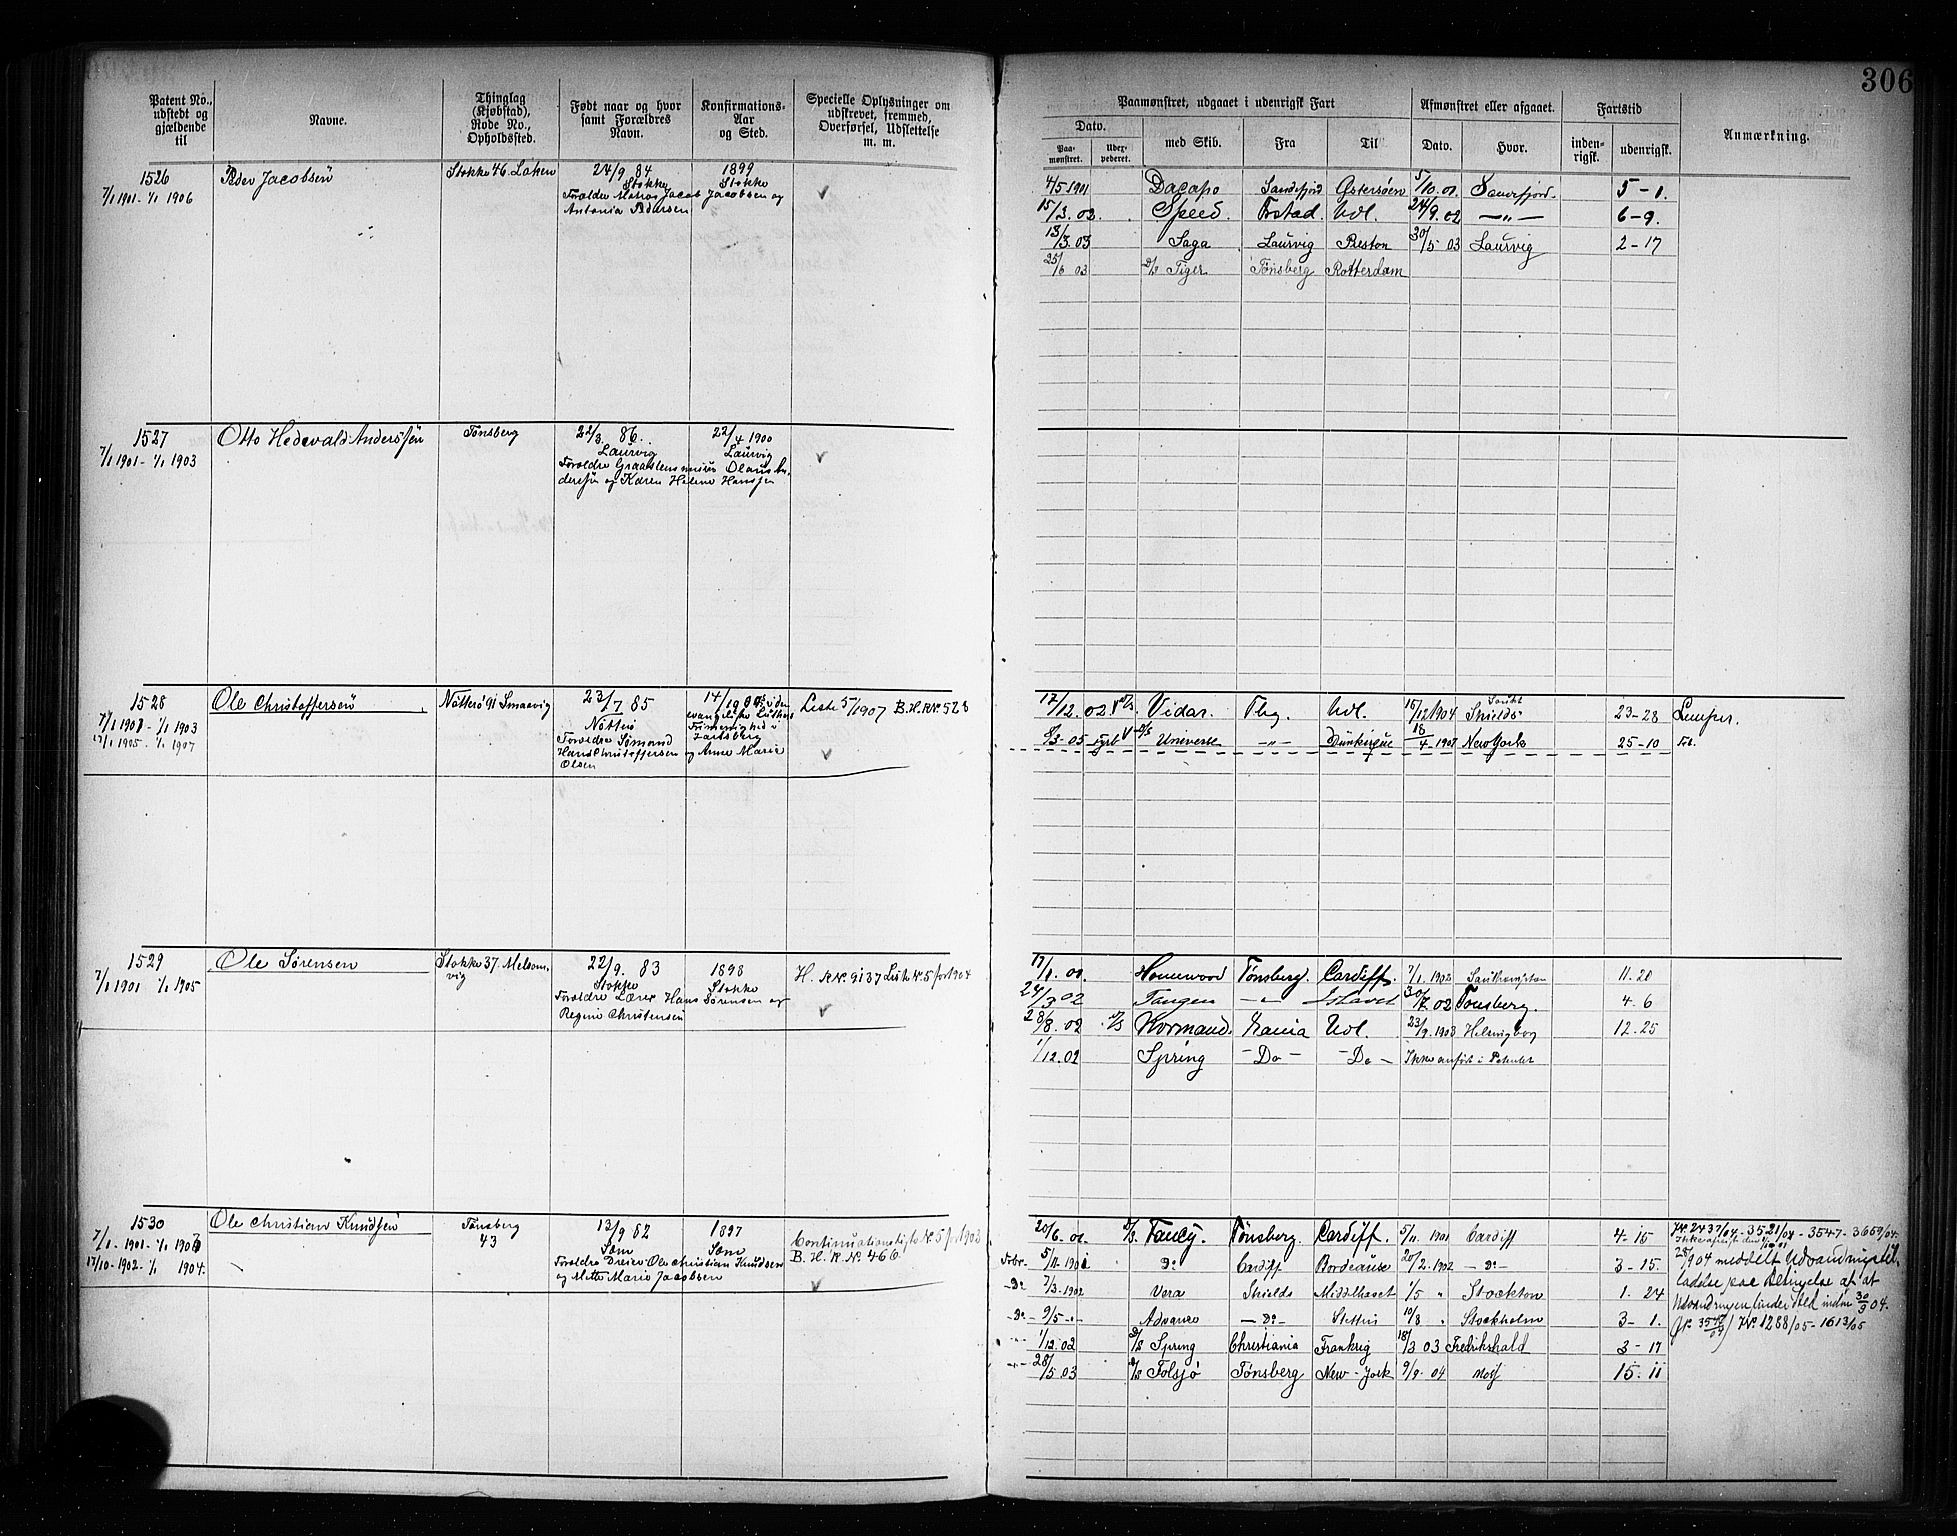 306
Patent No., udstedt og gjældende til
Navne.
Thinglag (Kjøbstad), Rode No., Opholdssted.
Født naar og hvor samt Forældres Navn.
Konfirmations-Aar og Sted.
Specielle Oplysninger om udskrevet, fremmed, Overførsel, Udslettelse m. m.
Paamønstret, udgaaet i udenrigsk Fart
Afmønstret eller afgaaet.
Fartstid
Anmærkning.
Dato.
med Skib.
Fra
Til
Dato.
Hvor.
inden-rigsk.
udenrigsk.
Paa-mønstret.
1526
7/1 1901 - 1/1 1906
Peder Jacobsen
Stokke 46.
24/9 84
Stokke
1899
Stokke
Forældre Matros Jacob Jacobsen og
Antonia Pedersen
4/5 1901 Dacapo Sandefjord Østersøen 5/10.01. Sandefjord. 5-1.
15/3.02. Speed. Fr.stad. Udl. 24/9.02 —"— 6-9.
13/3.03 Saga Laurvig Preston 30/5 03 Laurvig 2-17
25/6 03 D/S Tiger Tønsberg Rotterdam
1527
7/1 1901 - 1/1 1903
Otto Hedevald Anderssen
Tønsberg
22/3. 86.
Laurvig
22/4 1900
Laurvig
Forældre
Olaus An-
derssen og Karen Helene Hanssen
1528
7/1 1901 - 1/1 1903
17/1 1905 - 1/1 1907
Ole Christoffersen
Nøtterø 91 Smaavig
23/7 85
Nøtterø
Forældre Sømand
Hans Christoffersen
Olsen
evangelisk Luthers
Frimenighed i
Jarlsberg
og Anne Marie
Liste 5/1907 B.H.R.No. 528
17/12.02 D/S Vidar. Tbg. Udl. 15/12 1904 South Shields 23-28 Lemper.
8/3-05 D/S Universe —"— Dünkirque 18/4-1907 New York 25-10
1529
7/1 1901 1/1 1905
Ole Sørensen
Stokke 37. Melsom-
vig
22/9. 83
Stokke
1898
Stokke
Forældre Lærer Hans Sørensen og
Regine Christensen
H. R.No. 9137 Liste No. 5 for 1904
Homewood Tønsberg. Cardiff. 7/1.1902 Southampton 11.20
24/3 02 Tangen —"— 30/7 02 Tønsberg. 4.6
28/8.02 D/S Kormand. Xania Udl. 23/9.1903 Helsingborg 12.25
1/12.02 Spring —Do— —Do— Ikke anført i Patentet
1530
7/1 1901 - 1/1 1903
17/10-1902-1/1 1904.
Ole Christian Knudsen
Tønsberg
43
13/9 82
Sem
1897
Sem
Forældre Dreier Ole Christian Knudsen
og Mette Marie Jacobsen
Continuationsliste No. 5 for 1903
B. H. R. No. 466
20/6.01 D/S Fancy. Tønsberg. Cardiff. 5/11.1901 Cardiff 4-15
5/11-1901 Do Cardiff Bordeaux 20/2.1902 —Do— 3-15.
—Do— 7/3-1902 Vera Shields Middlhaset 1/5 " Stockton 1.24
—Do— 9/5 —"— Advance —Do— Stettin 10/8 " Stockholm 3-1.
—"— 1/12.02 D/S Spring Christiania Frankrig 18/3 03 Fredrikshald 3-17
—"— 28/5 03 D/S Folsjø Tønsberg New-York 9/9.04 Moss 15.11
J.No. 2437/04-3521/04-3547-3659/04.
28/9 04 meddelt Udvandringstil-
ladelse paa Betingelse af at
Udvandringen finder Sted inden 30/9 04.
J.No. 1288/05-1613/05